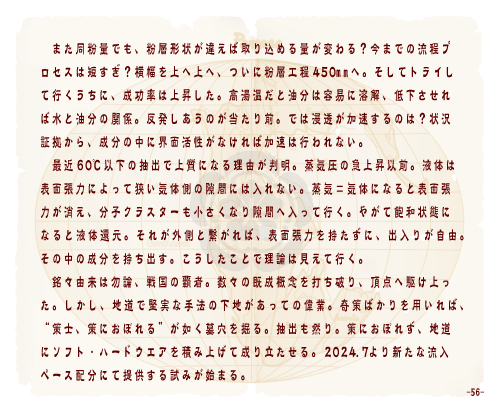 また同粉量でも、粉層形状が違えば取り込める量が変わる?今までの流程プ
ロセスは短すぎ?横幅を上へ上へ、ついに粉層工程450㎜へ。そしてトライし
て行くうちに、成功率は上昇した。高湯温だと油分は容易に溶解、低下させれ
ば水と油分の関係。反発しあうのが当たり前。では浸透が加速するのは?状況
証拠から、成分の中に界面活性がなければ加速は行われない。
最近60℃以下の抽出で上質になる理由が判明。蒸気圧の急上昇以前。液体は
表面張力によって狭い気体側の隙間には入れない。蒸気=気体になると表面張
力が消え、分子クラスターも小さくなり隙間へ入って行く。やがて飽和状態に
なると液体還元。それが外側と繋がれば、表面張力を持たずに、出入りが自由。
その中の成分を持ち出す。こうしたことで理論は見えて行く。
銘々由来は勿論、戦国の覇者。数々の既成概念を打ち破り、頂点へ駆け上っ
た。しかし、地道で堅実な手法の下地があっての偉業。奇策ばかりを用いれば、
“策士、策におぼれる”が如く墓穴を掘る。抽出も然り。策におぼれず、地道
にソフト・ハードウエアを積み上げて成り立たせる。2024.7より新たな流入
ペース配分にて提供する試みが始まる。
-56-